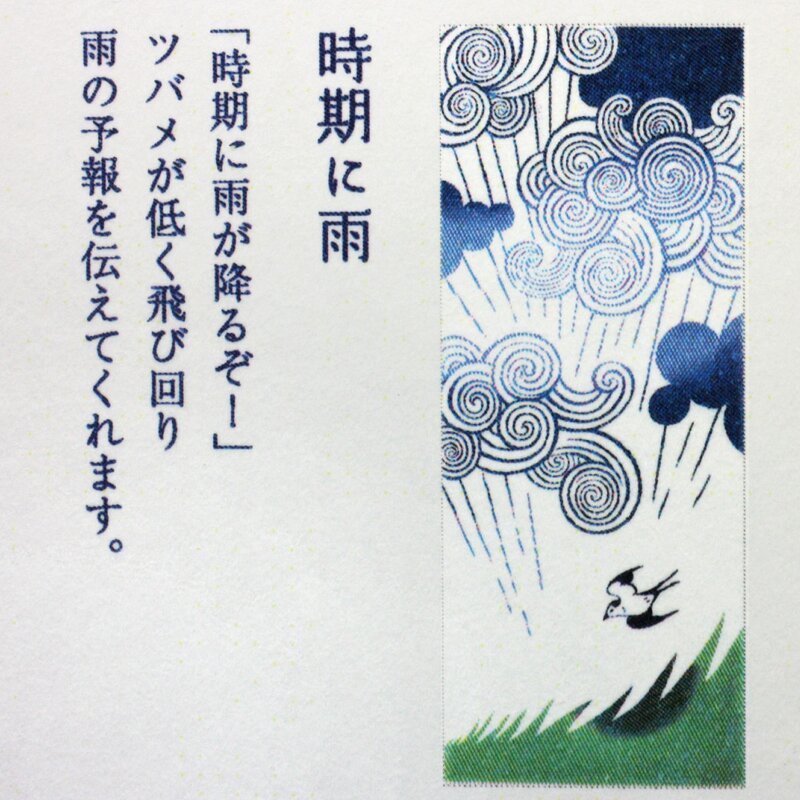 時期に雨
「時期に雨が降るぞー」
ツバメが低く飛び回り
雨の予報を伝えてくれます。